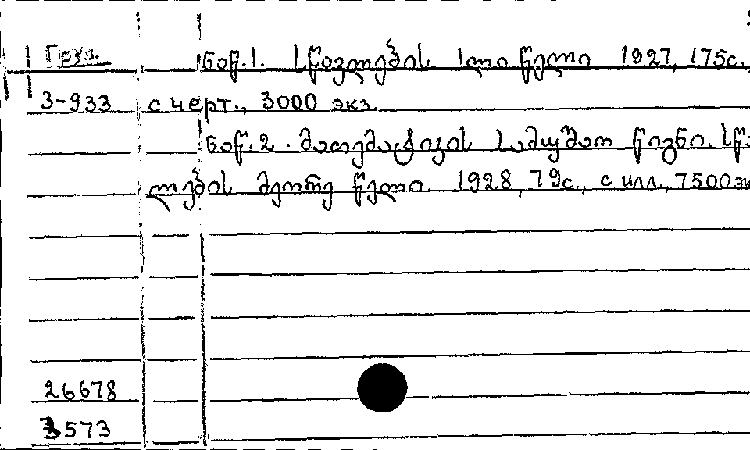 Груз. ნაწ. 1. სწავლების 1ლი წელი 1927, 175с.,
3-933 с черт., 3000 экз.
ნაწ. 2. მათემატიკის სამუშაო წიგნი. სწავ
ლების მეორე წელი 1928, 79с., с илл., 7500 эк
26678
3573